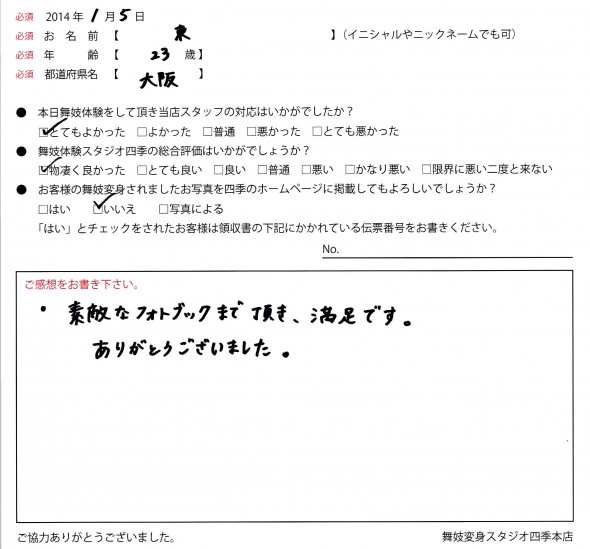 必須 2014年1月5日
必須 お名前【 東 】(イニシャルやニックネームでも可)
必須 年齢【 23 歳】
必須 都道府県名【 大阪 】
● 本日舞妓体験をして頂き当店スタッフの対応はいかがでしたか?
☑とてもよかった □よかった □普通 □悪かった □とても悪かった
● 舞妓体験スタジオ四季の総合評価はいかがでしょうか?
☑物凄く良かった □とても良い □良い □普通 □悪い □かなり悪い □限界に悪い二度と来ない
● お客様の舞妓変身されましたお写真を四季のホームページに掲載してもよろしいでしょうか?
□はい ☑いいえ □写真による
「はい」とチェックをされたお客様は領収書の下記にかかれている伝票番号をお書きください。
No.
ご感想をお書き下さい。
・素敵なフォトブックまで頂き、満足です。
ありがとうございました。
ご協力ありがとうございました。 舞妓変身スタジオ四季本店